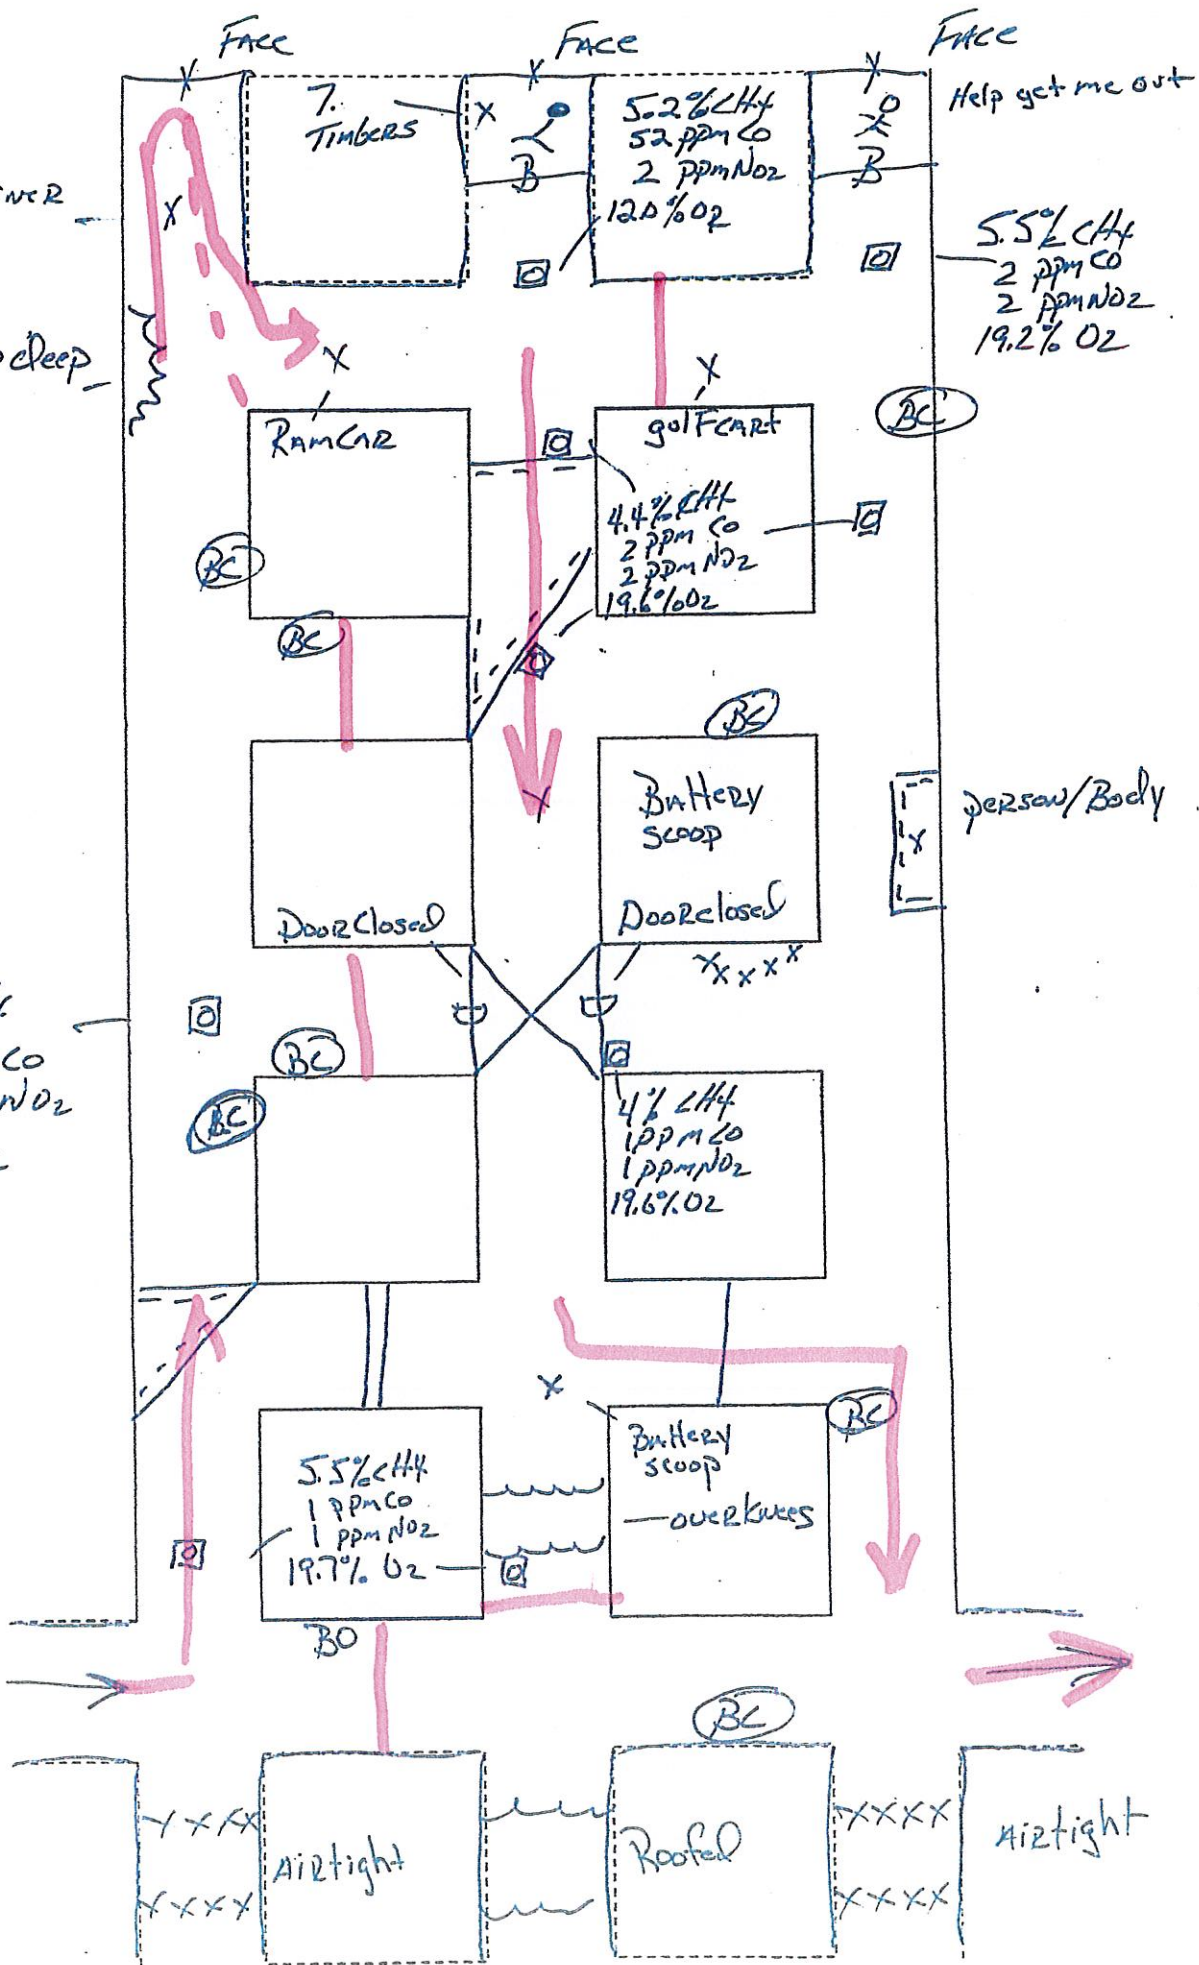 FACE
FACE
FACE
Help get me out
7.
TIMBERS
X
5.2% CH4
52 ppm CO
2 ppm NO2
12.0% O2
B
B
5.5% CH4
2 ppm CO
2 ppm NO2
19.2% O2
deep
RAMCAR
golf cart
BC
4.4% CH4
2 ppm CO
2 ppm NO2
19.6% O2
BC
BC
BC
Battery
scoop
person/Body
Door Closed
Door closed
XXXXX
CO
NO2
BC
BC
4% CH4
1 ppm CO
1 ppm NO2
19.6% O2
X
BC
Battery
scoop
over knees
5.5% CH4
1 ppm CO
1 ppm NO2
19.7% O2
BO
BC
XXXX
XXXX
Airtight
Roofed
XXXX
XXXX
Airtight